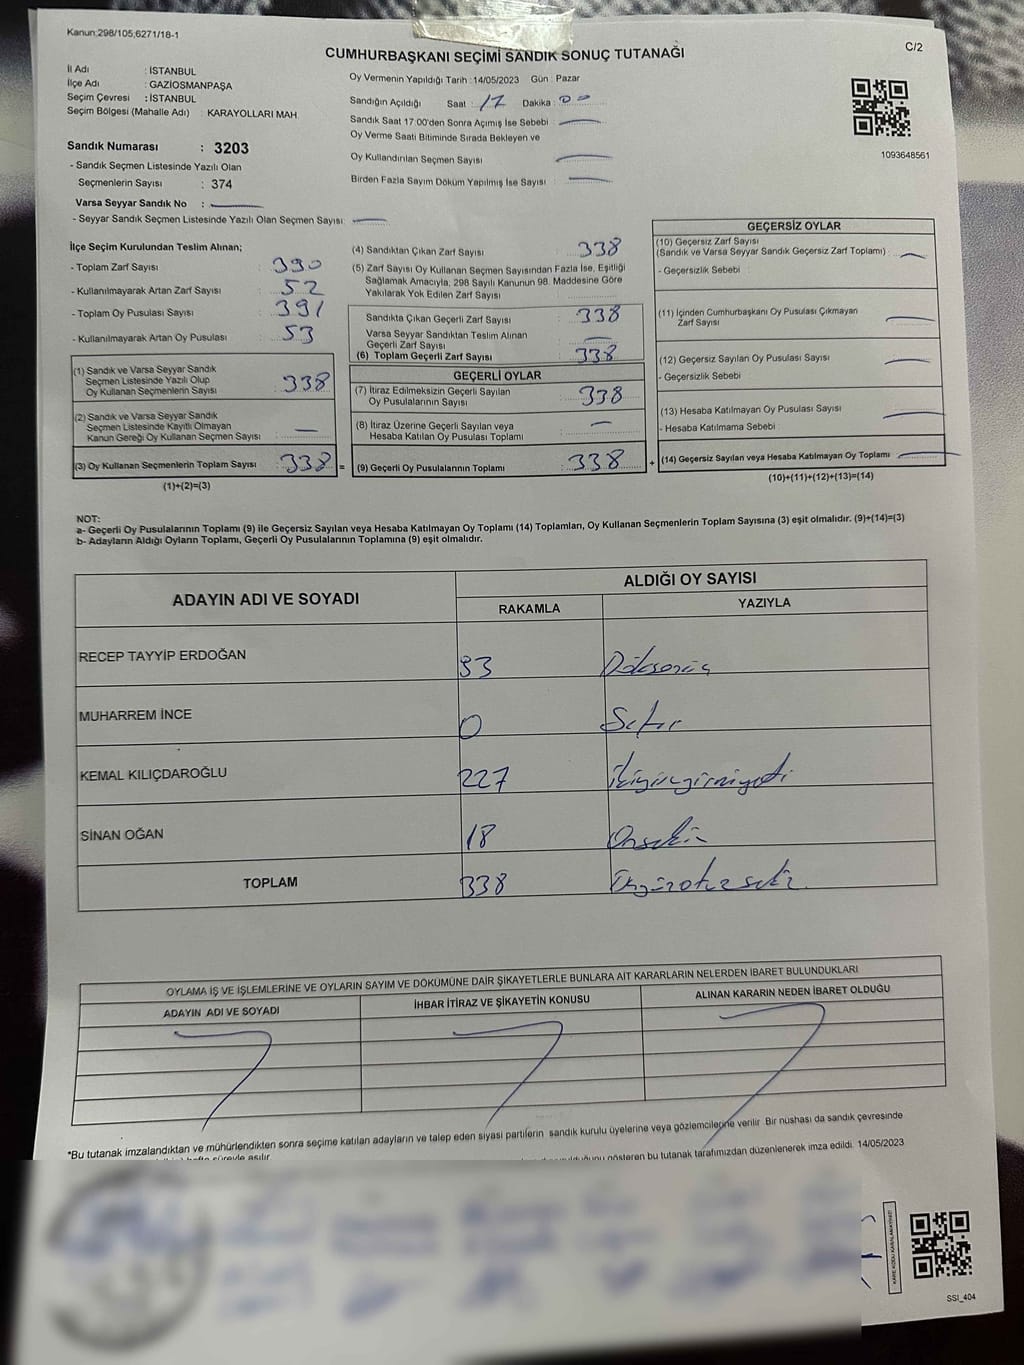 Kanun;298/105;6271/18-1
C/2
CUMHURBAŞKANI SEÇİMİ SANDIK SONUÇ TUTANAĞI
İl Adı : İSTANBUL
İlçe Adı : GAZİOSMANPAŞA
Seçim Çevresi : İSTANBUL
Seçim Bölgesi (Mahalle Adı) : KARAYOLLARI MAH
Sandık Numarası : 3203
- Sandık Seçmen Listesinde Yazılı Olan
Seçmenlerin Sayısı : 374
Varsa Seyyar Sandık No :
- Seyyar Sandık Seçmen Listesinde Yazılı Olan Seçmen Sayısı:
Oy Vermenin Yapıldığı Tarih : 14/05/2023 Gün : Pazar
Sandığın Açıldığı Saat : 17 Dakika : 00
Sandık Saat 17:00'den Sonra Açımış İse Sebebi :
Oy Verme Saati Bitiminde Sırada Bekleyen ve
Oy Kullandırılan Seçmen Sayısı
Birden Fazla Sayım Döküm Yapılmış İse Sayısı :
1093648561
İlçe Seçim Kurulundan Teslim Alınan;
- Toplam Zarf Sayısı : 390
- Kullanılmayarak Artan Zarf Sayısı : 52
- Toplam Oy Pusulası Sayısı : 391
- Kullanılmayarak Artan Oy Pusulası : 53
(1) Sandık ve Varsa Seyyar Sandık
Seçmen Listesinde Yazılı Olup
Oy Kullanan Seçmenlerin Sayısı : 338
(2) Sandık ve Varsa Seyyar Sandık
Seçmen Listesinde Kayıtlı Olmayan
Kanun Gereği Oy Kullanan Seçmen Sayısı :
(3) Oy Kullanan Seçmenlerin Toplam Sayısı : 338 =
(1)+(2)=(3)
(4) Sandıktan Çıkan Zarf Sayısı : 338
(5) Zarf Sayısı Oy Kullanan Seçmen Sayısından Fazla İse, Eşitliği
Sağlamak Amacıyla, 298 Sayılı Kanunun 98. Maddesine Göre
Yakılarak Yok Edilen Zarf Sayısı :
Sandıkta Çıkan Geçerli Zarf Sayısı : 338
Varsa Seyyar Sandıktan Teslim Alınan
Geçerli Zarf Sayısı :
(6) Toplam Geçerli Zarf Sayısı : 338
GEÇERLİ OYLAR
(7) İtiraz Edilmeksizin Geçerli Sayılan
Oy Pusulalarının Sayısı : 338
(8) İtiraz Üzerine Geçerli Sayılan veya
Hesaba Katılan Oy Pusulası Toplamı :
(9) Geçerli Oy Pusulalarının Toplamı : 338 +
GEÇERSİZ OYLAR
(10) Geçersiz Zarf Sayısı
(Sandık ve Varsa Seyyar Sandık Geçersiz Zarf Toplamı) :
- Geçersizlik Sebebi :
(11) İçinden Cumhurbaşkanı Oy Pusulası Çıkmayan
Zarf Sayısı :
(12) Geçersiz Sayılan Oy Pusulası Sayısı :
- Geçersizlik Sebebi
(13) Hesaba Katılmayan Oy Pusulası Sayısı :
- Hesaba Katılmama Sebebi :
(14) Geçersiz Sayılan veya Hesaba Katılmayan Oy Toplamı :
(10)+(11)+(12)+(13)=(14)
NOT:
a- Geçerli Oy Pusulalarının Toplamı (9) ile Geçersiz Sayılan veya Hesaba Katılmayan Oy Toplamı (14) Toplamları, Oy Kullanan Seçmenlerin Toplam Sayısına (3) eşit olmalıdır. (9)+(14)=(3)
b- Adayların Aldığı Oyların Toplamı, Geçerli Oy Pusulalarının Toplamına (9) eşit olmalıdır.
ADAYIN ADI VE SOYADI
ALDIĞI OY SAYISI
RAKAMLA YAZIYLA
RECEP TAYYİP ERDOĞAN 93
MUHARREM İNCE 0 Sıfır
KEMAL KILIÇDAROĞLU 227 ikiyüzyirmiyedi
SİNAN OĞAN 18 Onsekiz
TOPLAM 338 Üçyüzotuzsekiz
OYLAMA İŞ VE İŞLEMLERİNE VE OYLARIN SAYIM VE DÖKÜMÜNE DAİR ŞİKAYETLERLE BUNLARA AİT KARARLARIN NELERDEN İBARET BULUNDUKLARI
ADAYIN ADI VE SOYADI İHBAR İTİRAZ VE ŞİKAYETİN KONUSU ALINAN KARARIN NEDEN İBARET OLDUĞU
*Bu tutanak imzalandıktan ve mühürlendikten sonra seçime katılan adayların ve talep eden siyasi partilerin sandık kurulu üyelerine veya gözlemcilerine verilir. Bir nüshası da sandık çevresinde
hafta süreyle asılır.
gösteren bu tutanak tarafımızdan düzenlenerek imza edildi. 14/05/2023
SSI_404